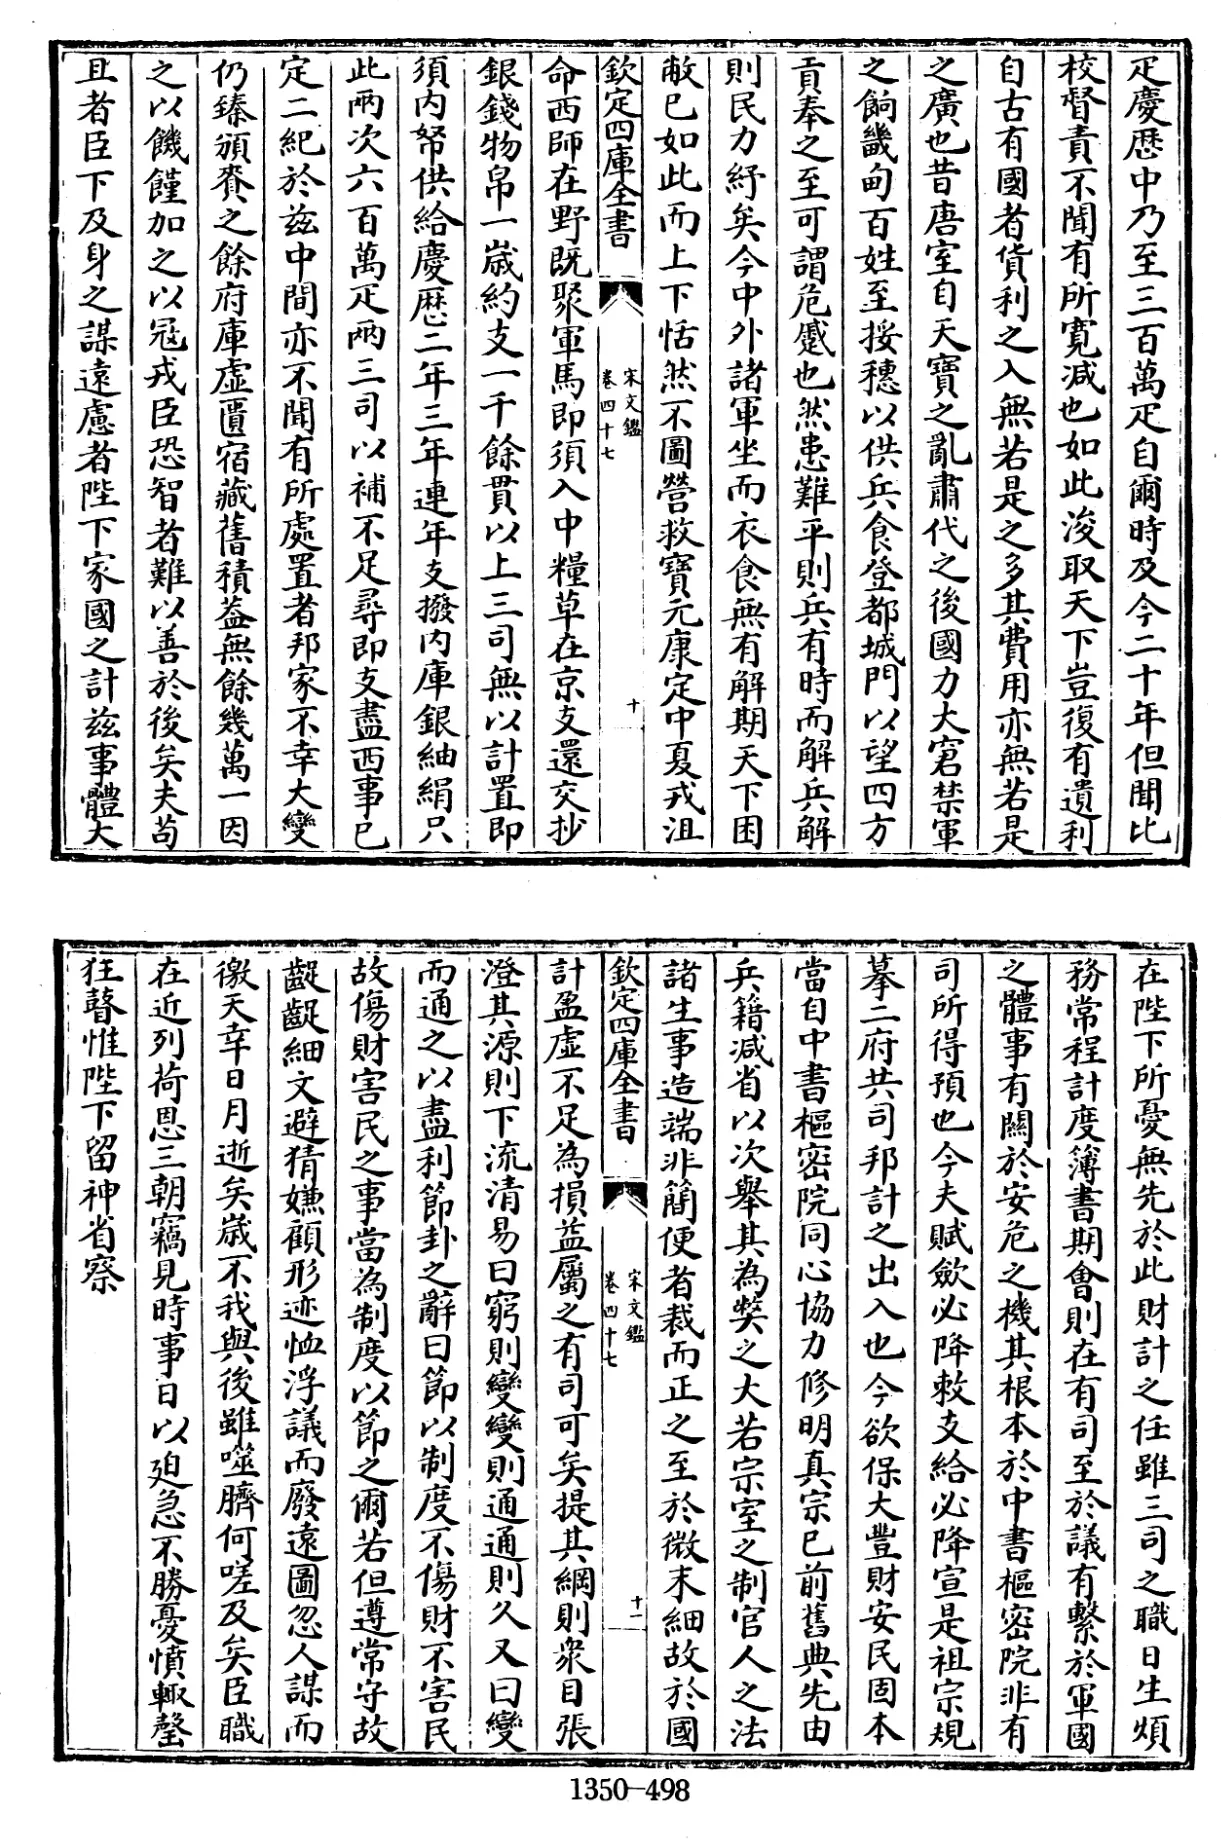 疋慶歴中乃至三百萬疋自爾時及今二十年但聞比
校督責不聞有所寛減也如此浚取天下豈復有遺利
自古有國者貨利之入無若是之多其費用亦無若是
之廣也昔唐室自天寶之亂肅代之後國力大窘禁軍
之餉畿甸百姓至挼穗以供兵食登都城門以望四方
貢奉之至可謂危蹙也然患難平則兵有時而解兵解
則民力紓矣今中外諸軍坐而衣食無有解期天下困
敝已如此而上下恬然不圖營救寶元康定中夏戎沮
欽定四庫全書
宋文鑑
卷四十七
十
命西師在野既聚軍馬即須入中糧草在京支還交抄
銀錢物帛一嵗約支一千餘貫以上三司無以計置即
須内帑供給慶歴二年三年連年支撥内庫銀紬絹只
此兩次六百萬疋兩三司以補不足尋即支盡西事已
定二紀於兹中間亦不聞有所處置者邦家不幸大變
仍臻頒賚之餘府庫虚匱宿藏舊積葢無餘幾萬一因
之以饑饉加之以冦戎臣恐智者難以善於後矣夫茍
且者臣下及身之謀遠慮者陛下家國之計兹事體大
在陛下所憂無先於此財計之任雖三司之職日生煩
務常程計度簿書期會則在有司至於議有繫於軍國
之體事有闗於安危之機其根本於中書樞密院非有
司所得預也今夫賦歛必降敕支給必降宣是祖宗規
摹二府共司邦計之出入也今欲保大豐財安民固本
當自中書樞密院同心協力修明真宗已前舊典先由
兵籍減省以次舉其為獘之大若宗室之制官人之法
諸生事造端非簡便者裁而正之至於微末細故於國
欽定四庫全書
宋文鑑
卷四十七
十一
計盈虚不足為損益屬之有司可矣提其綱則衆目張
澄其源則下流清易曰窮則變變則通通則久又曰變
而通之以盡利節卦之辭曰節以制度不傷財不害民
故傷財害民之事當為制度以節之爾若但遵常守故
齪齪細文避猜嫌顧形迹恤浮議而廢遠圖忽人謀而
徼天幸日月逝矣嵗不我與後雖噬臍何嗟及矣臣職
在近列荷恩三朝竊見時事日以廹急不勝憂憤輙罄
狂瞽惟陛下留神省察
1350-498